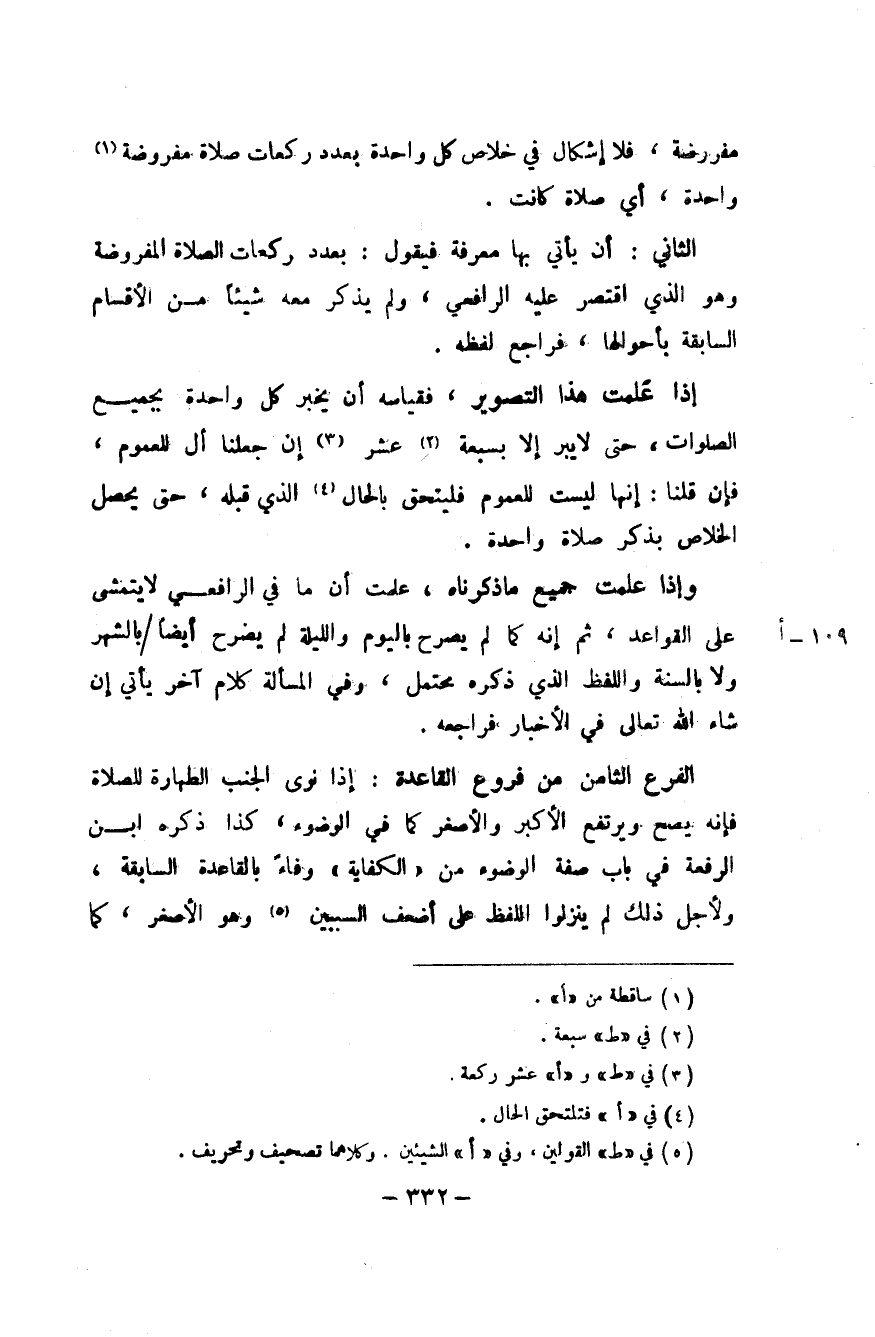 مفررضة ، فلا إشكال في خلاص كل واحدة بعدد ركعات صلاة مفروضة (١)
واحدة ، أي صلاة كانت .
الثاني : أن يأتي بها معرفة فيقول : بعدد ركعات الصلاة المفروضة
وهو الذي اقتصر عليه الرافعي ، ولم يذكر معه شيئاً مــن الأقسام
السابقة بأحوالها ، فراجع لفظه .
إذا عَلمت هذا التصوير ، فقياسه أن يخبر كل واحدة بجميــع
الصلوات ، حتى لايبر إلا بسبعة (٢) عشر (٣) إن جعلنا أل للعموم ،
فإن قلنا : إنها ليست للعموم فليتحق بالحال (٤) الذي قبله ، حتى يحصل
الخلاص بذكر صلاة واحدة .
وإذا علمت جميع ماذكرناه ، علمت أن ما في الرافعــي لايتمشى
على القواعد ، ثم إنه كما لم يصرح باليوم والليلة لم يضرح أيضاً/بالشهر
١٠٩ – أ
ولا بالسنة واللفظ الذي ذكره محتمل ، وفي المسألة كلام آخر يأتي إن
شاء الله تعالى في الأخبار فراجعه .
الفرع الثامن من فروع القاعدة : إذا نوى الجنب الطهارة للصلاة
فإنه يصح ويرتفع الأكبر والأصغر كما في الوضوء ، كذا ذكره ابــن
الرفعة في باب صفة الوضوء من «الكفاية» وفاءً بالقاعدة السابقة ،
ولأجل ذلك لم ينزلوا اللفظ على أضعف السببين (٥) وهو الأصغر ، كما
(١) ساقطة من «أ» .
(٢) في «ط» سبعة .
(٣) في «ط» و «أ» عشر ركعة .
(٤) في « أ » فتلتحق الحال .
(٥) في «ط» القولين ، وفي « أ » الشيئين . وكلاهما تصحيف وتحريف .
– ٣٣٢ –